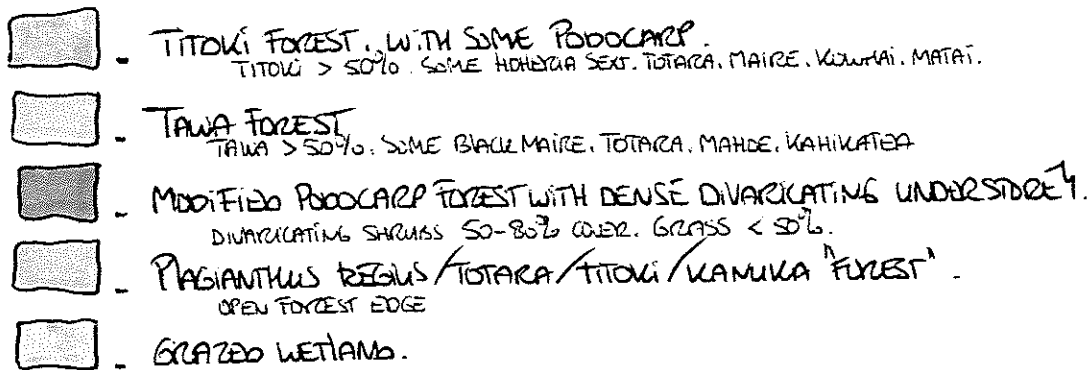 - TITOKI FOREST. WITH SOME PODOCARP.
TITOKI > 50%. SOME HOHERIA SEXT. TOTARA. MAIRE. KOWHAI. MATAI.
- TAWA FOREST
TAWA > 50%. SOME BLACK MAIRE. TOTARA. MAHOE. KAHIKATEA
- MODIFIED PODOCARP FOREST WITH DENSE DIVARICATING UNDERSTOREY.
DIVARICATING SHRUBS 50-80% COVER. GRASS < 50%.
- PLAGIANTHUS REGIUS/TOTARA/TITOKI/KANUKA "FOREST".
OPEN FOREST EDGE
- GRAZED WETLAND.